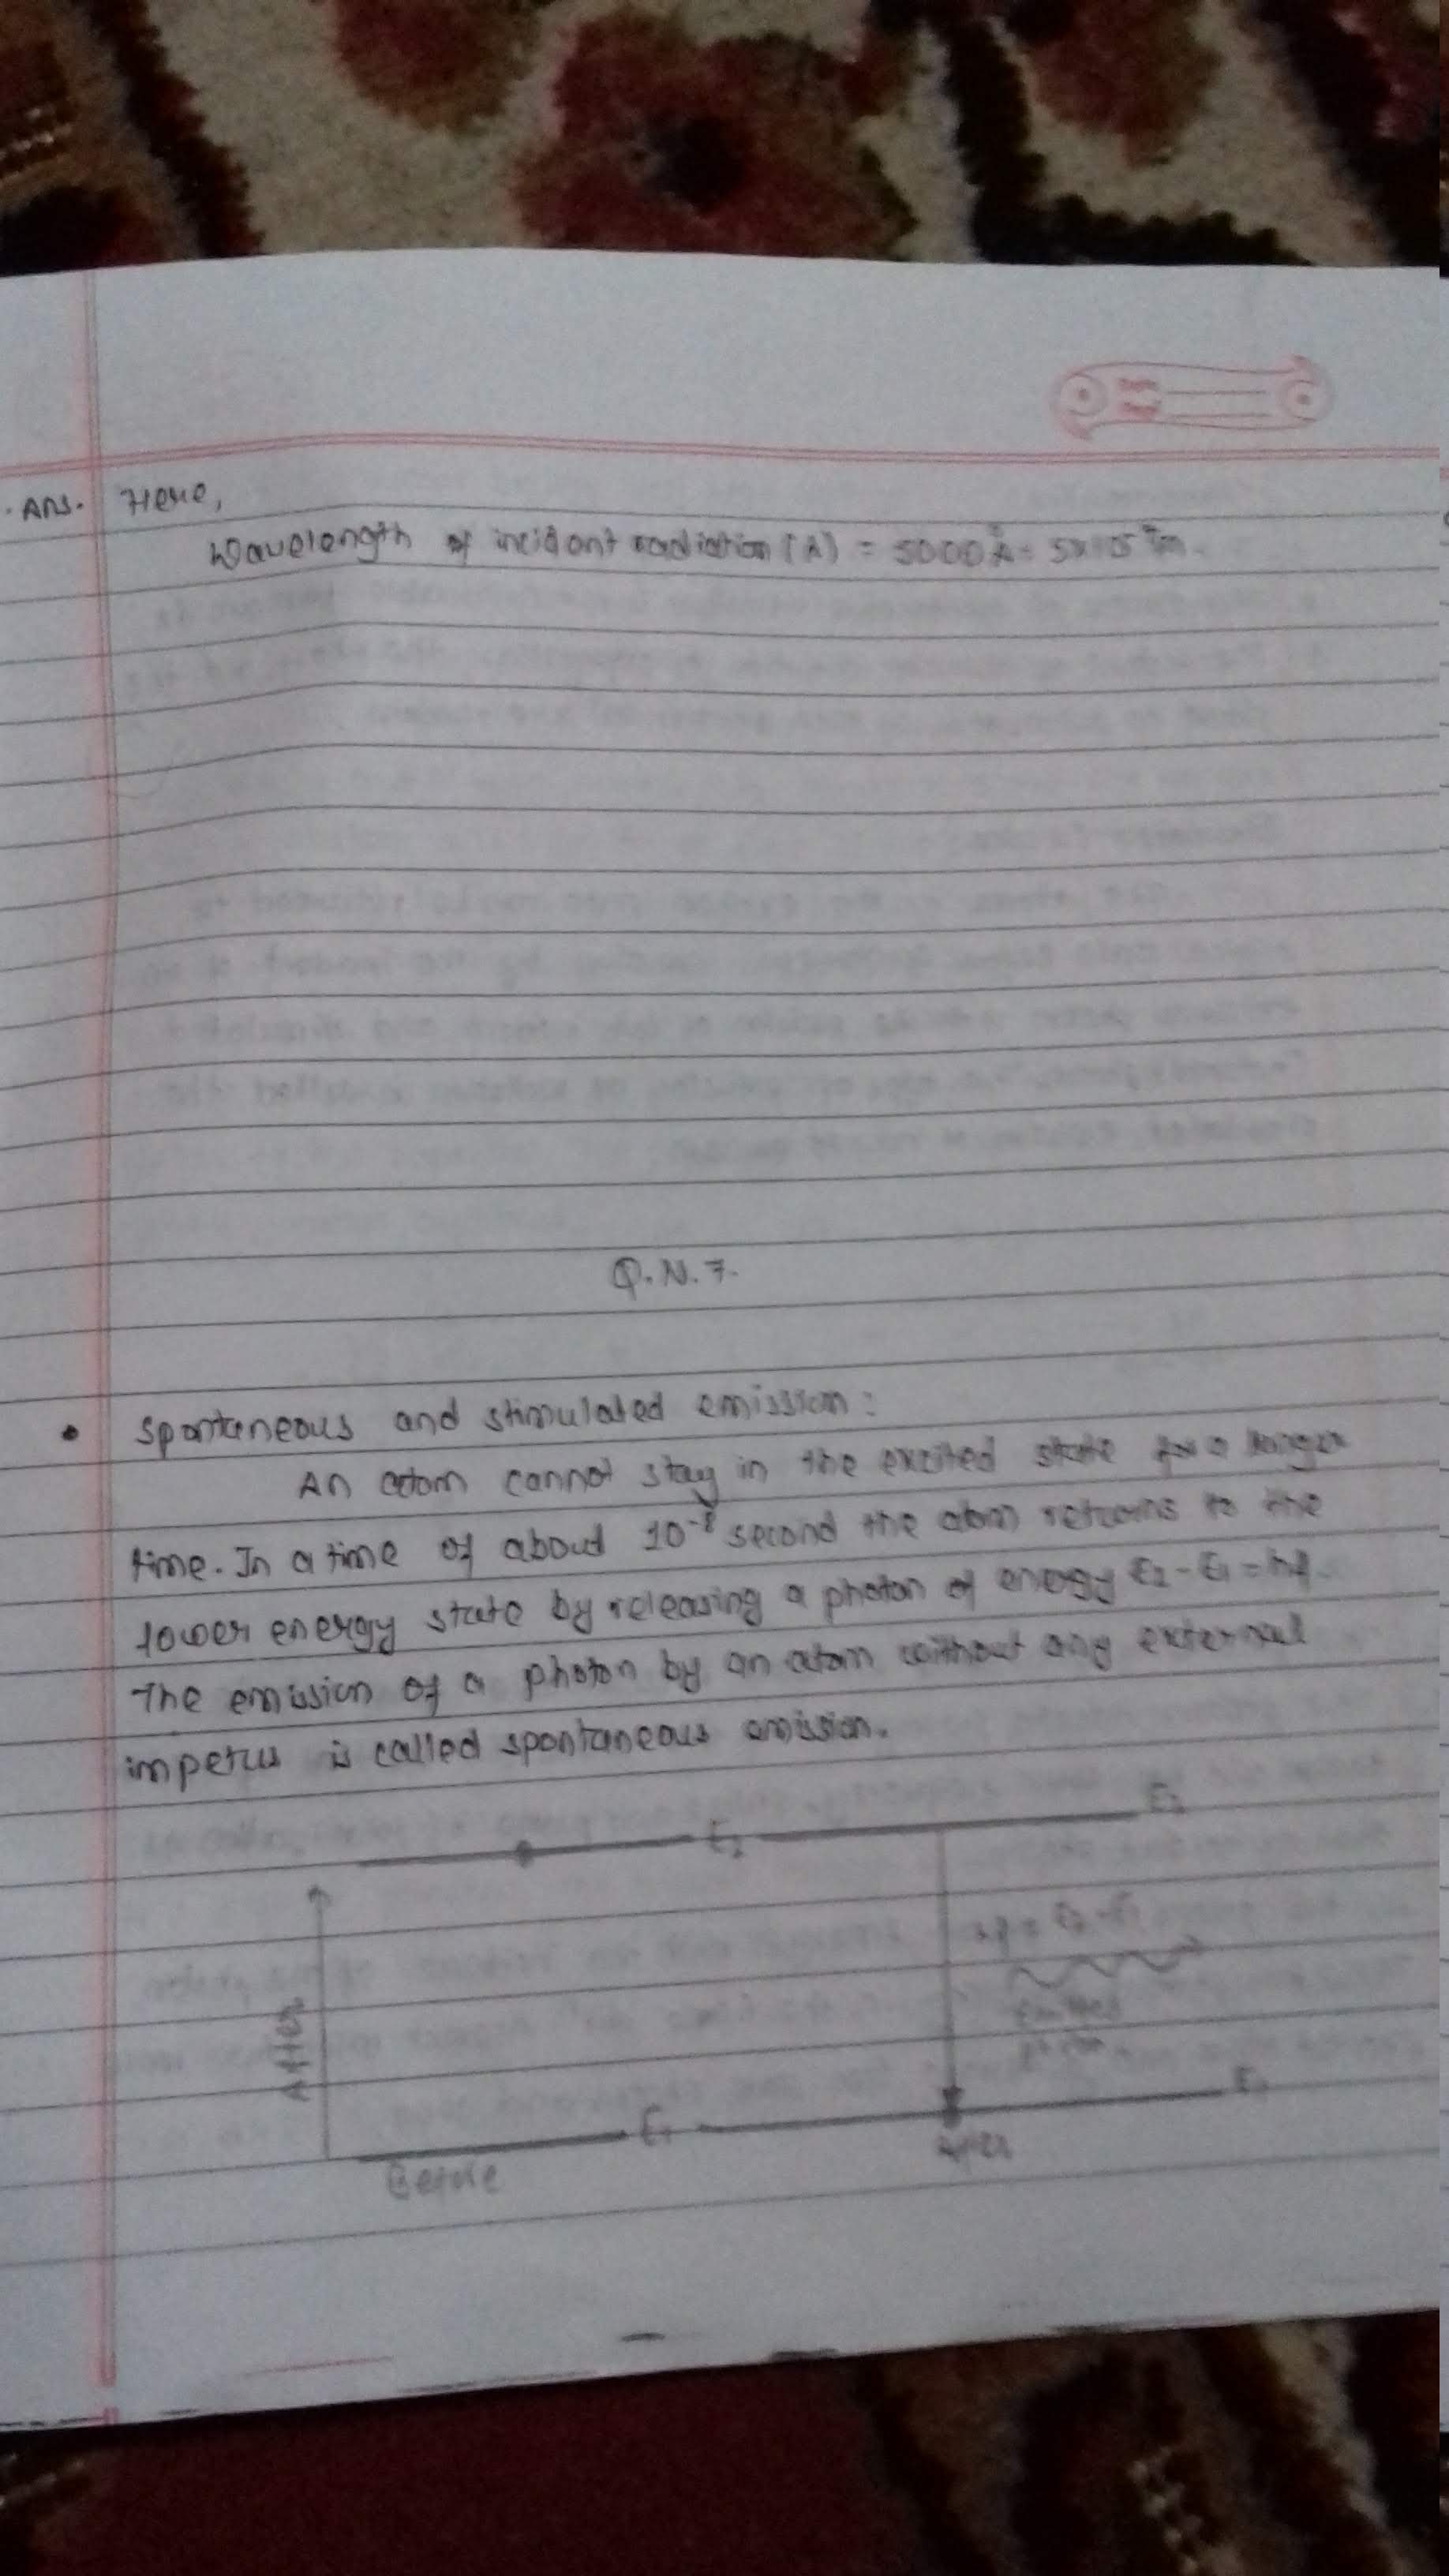 . Ans. Here,
Wavelength of incident radiation (λ) = 5000Å = 5×10⁻⁷m.
Q.N.7.
• Spontaneous and stimulated emission:
An atom cannot stay in the excited state for a longer
time. In a time of about 10⁻⁸ second the atom returns to the
lower energy state by releasing a photon of energy E₂-E₁ = hf.
The emission of a photon by an atom without any external
impetus is called spontaneous emission.
E₂ E₂
hf = E₂-E₁
Emitted
photon
After
E₁ E₁
Before After